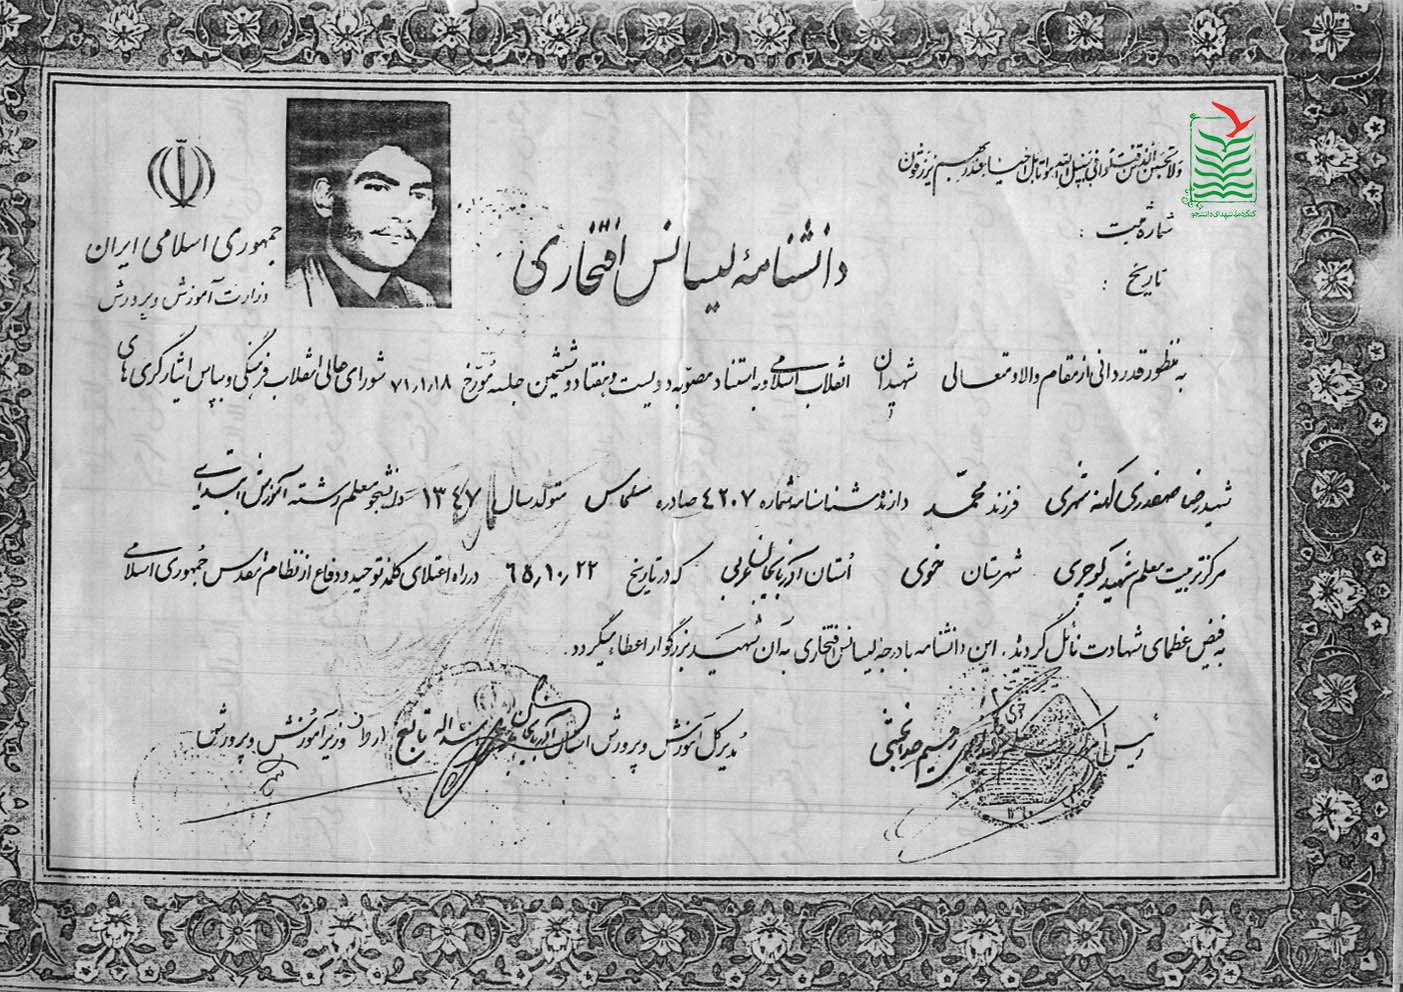 ولا تحسبن الذین قتلوا فی سبیل الله امواتا بل احیاء عند ربهم یرزقون
کنگره ملی شهدای دانشجو
جمهوری اسلامی ایران
وزارت آموزش و پرورش
شماره ثبت :
تاریخ :
دانشنامهٔ لیسانس افتخاری
به منظور قدردانی از مقام والا و متعالی شهیدان انقلاب اسلامی و به استناد مصوبه دویست و هفتاد و ششمین جلسه مورخ ۷۱،۱،۱۸ شورای عالی انقلاب فرهنگی و بپاس ایثارگری های
شهید رضا صفدری کهنه شهری فرزند محمّد دارندهٔ شناسنامه شماره ۴۲۰۷ صادره سلماس متولد سال ۱۳۴۷ دانشجو معلم رشته آموزش ابتدائی
مرکز تربیت معلم شهید کوچری شهرستان خوی اُستان آذربایجانغربی که در تاریخ ۶۵،۱۰،۲۲ در راه اعتلای کلمه توحید و دفاع از نظام مقدس جُمهوری اسلامی
به فیض عظمای شهادت نائل گردید ، این دانشنامه با درجه لیسانس افتخاری به آن شهید بزرگوار اعطاء میگردد .
رئیس
مُدیرکل آموزش و پرورش استان آذربایجان
از طرف وزیر آموزش و پرورش